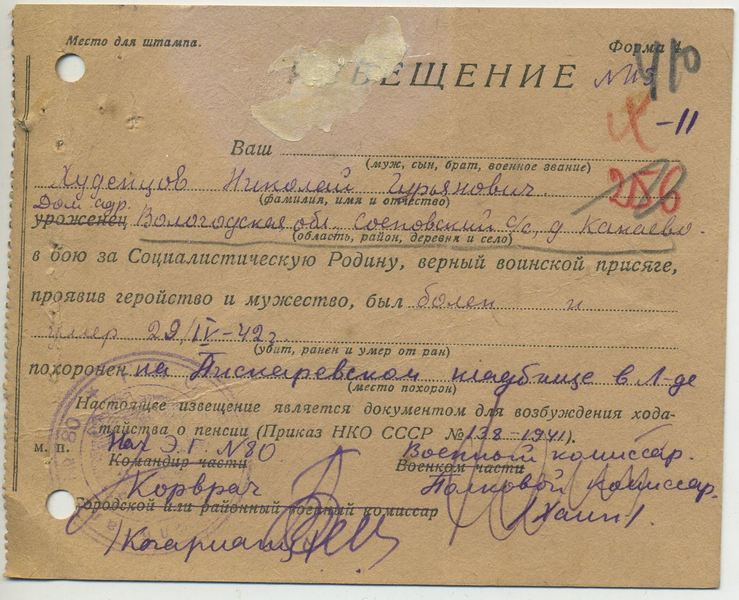 Место для штампа.
Форма 4
ИЗВЕЩЕНИЕ №113
410
Х-11
Ваш
(муж, сын, брат, военное звание)
Худепцов Николай Гурьянович.
(фамилия, имя и отчество)
Дом адр.
уроженец Вологодская обл. Сосновский с/с, д Канаево.
(область, район, деревня и село)
в бою за Социалистическую Родину, верный воинской присяге,
проявив геройство и мужество, был болен и
умер 29/IV-42 г.
(убит, ранен и умер от ран)
похоронен на Пискаревском кладбище в Л-де
(место похорон)
Настоящее извещение является документом для возбуждения хода-
тайства о пенсии (Приказ НКО СССР № 138-1941).
м. п. Нач Э.Г. №80 Военный комиссар.
Командир части Военком части
Корврач Полковой комиссар.
Городской или районный военный комиссар /Хаин/.